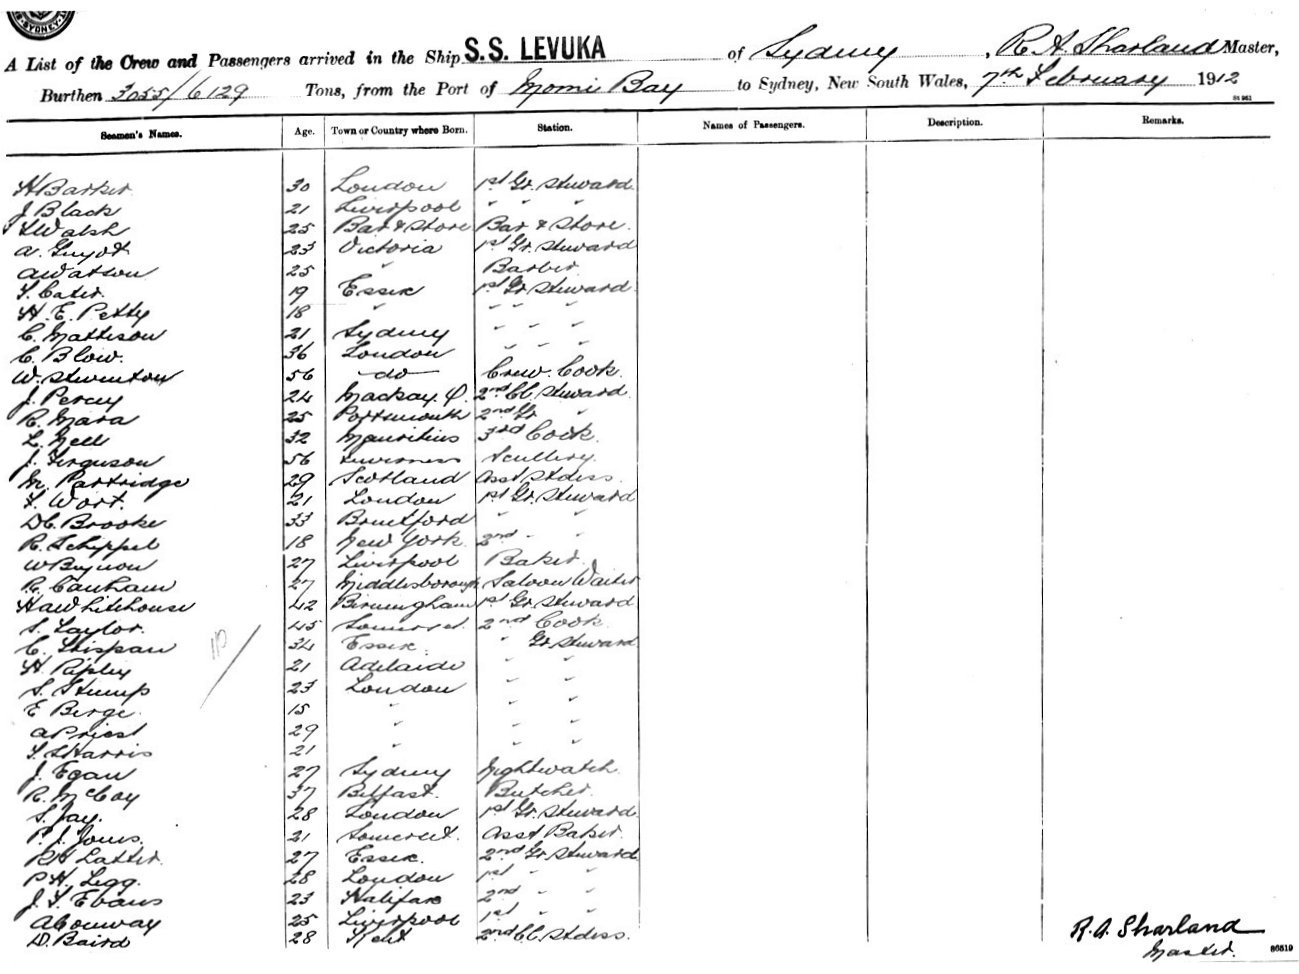 SYDNEY
A List of the Crew and Passengers arrived in the Ship S.S. LEVUKA of Sydney, R. A. Sharland Master,
Burthen 3055/6129 Tons, from the Port of Momi Bay to Sydney, New South Wales, 7th February 1912
81961
Seamen's Names. Age. Town or Country where Born. Station. Names of Passengers. Description. Remarks.
H Barker 30 London 1st Gr. Steward
J Black 21 Liverpool " " "
Walsh 25 Bar & Store Bar & Store.
A. Guyot 23 Victoria 1st Gr. Steward
A Watson 25 " Barber
F. Cater 19 Essex 1st Gr Steward
H. E. Petty 18 " " " "
C. Mattison 21 Sydney " " "
C. Blow. 36 London " " "
W. Swinton 56 do Crew Cook
J. Percy 24 Mackay Q. 2nd Cl Steward
R. Mara 25 Portsmouth 2nd Gr "
L. Nell 32 Mauritius 3rd Cook
J. Ferguson 56 Inverness Scullery
M. Partridge 29 Scotland Asst Stdess
F. Wort. 21 London 1st Gr. Steward
D C. Brooke 33 Brentford " "
R. Schippel 18 New York 2nd " "
W Bynon 27 Liverpool Baker
R. Canham 27 Middlesborough Saloon Waiter
H A Whitehouse 42 Birmingham 1st Gr Steward
S. Taylor. 45 Somerset. 2nd Cook
C. 34 Essex " Gr Steward
H. Ripley 21 Adelaide " "
S. Stump 23 London " "
E Berge. 15 " " "
A Priest 29 " " "
F. S Harris 21 " " "
J. Egan 27 Sydney Nightwatch
R. McCoy 37 Belfast. Butcher
S. Jay. 28 London 1st Gr. Steward
P. J. Jones. 21 Somerset. Asst Baker
R H Latter. 27 Essex. 2nd Gr Steward
P H. Legg. 28 London 1st " "
J. F. Evans 23 Halifax 2nd " "
A Conway 25 Liverpool 1st " "
D. Baird 28 Kent 2nd Cl Stdess.
R. A. Sharland
Master.
86519